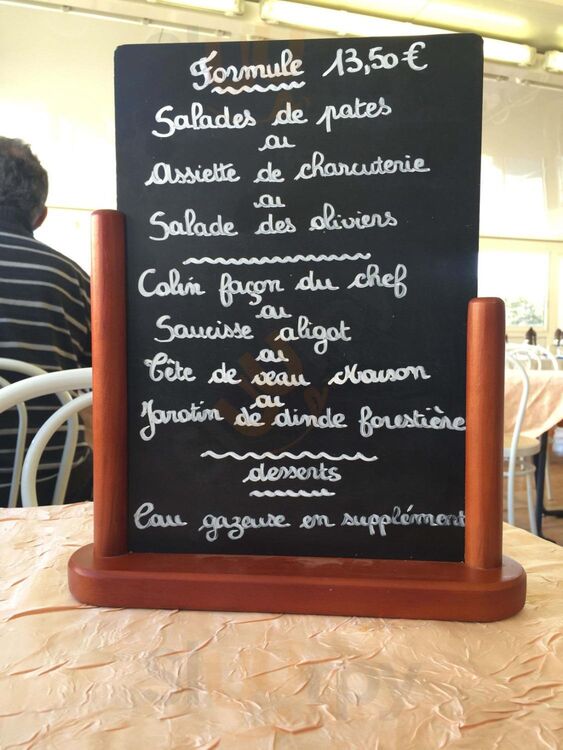 Formule 13,50 €
Salades de pates
ou
Assiette de charcuterie
ou
Salade des oliviers
Colin façon du chef
ou
Saucisse aligot
ou
Tête de veau Maison
ou
Jarotin de dinde forestière
desserts
Eau gazeuse en supplément